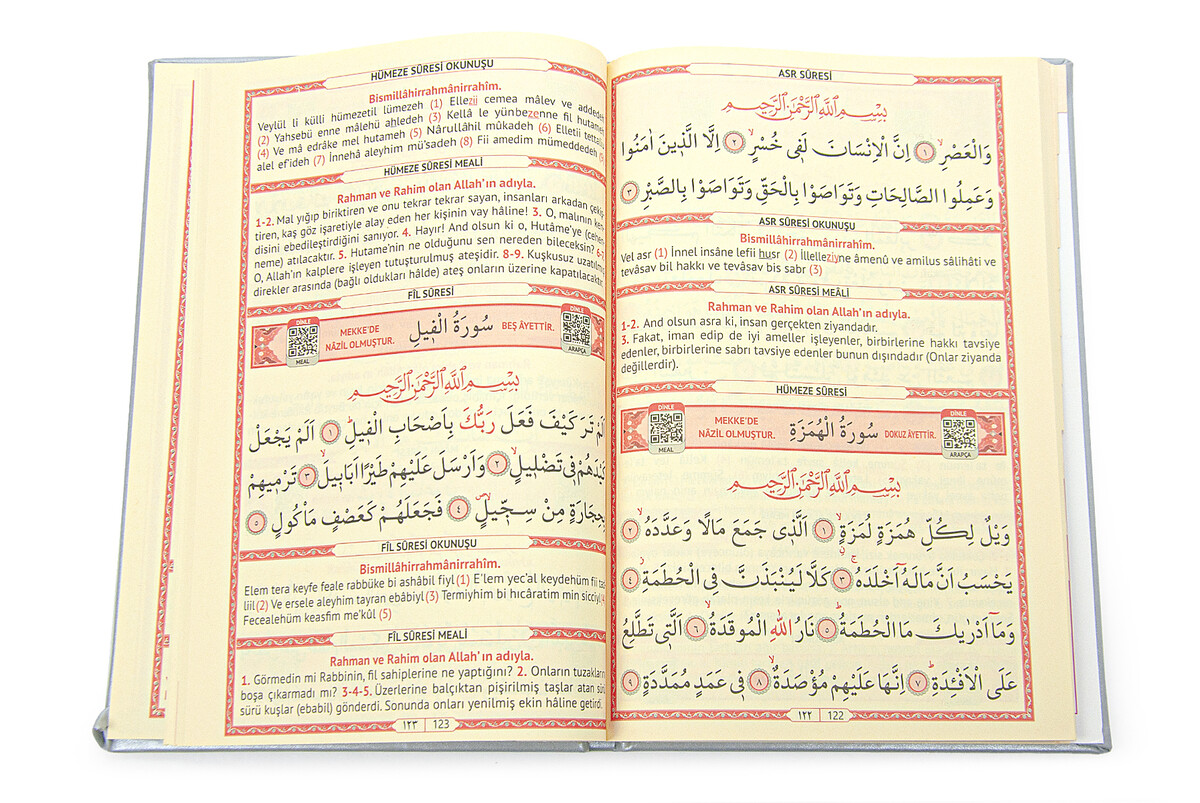 ASR SÛRESİ
بِسْمِ اللّٰهِ الرَّحْمٰنِ الرَّحٖيمِ
وَالْعَصْرِۙ ١ اِنَّ الْاِنْسَانَ لَفٖي خُسْرٍۙ ٢ اِلَّا الَّذٖينَ اٰمَنُوا
وَعَمِلُوا الصَّالِحَاتِ وَتَوَاصَوْا بِالْحَقِّ وَتَوَاصَوْا بِالصَّبْرِ ٣
ASR SÛRESİ OKUNUŞU
Bismillâhirrahmânirrahîm.
Vel asr (1) İnnel insâne lefii husr (2) İllelleziyne âmenû ve amilus sâlihâti ve
tevâsav bil hakkı ve tevâsav bis sabr (3)
ASR SÛRESİ MEÂLİ
Rahman ve Rahim olan Allah'ın adıyla.
1-2. And olsun asra ki, insan gerçekten ziyandadır.
3. Fakat, iman edip de iyi ameller işleyenler, birbirlerine hakkı tavsiye
edenler, birbirlerine sabrı tavsiye edenler bunun dışındadır (Onlar ziyanda
değillerdir).
HÜMEZE SÛRESİ
DİNLE
MEAL
MEKKE'DE
NÂZİL OLMUŞTUR.
سُورَةُ الْهُمَزَةِ
DOKUZ ÂYETTİR.
DİNLE
ARAPÇA
بِسْمِ اللّٰهِ الرَّحْمٰنِ الرَّحٖيمِ
وَيْلٌ لِكُلِّ هُمَزَةٍ لُمَزَةٍۙ ١ اَلَّذٖي جَمَعَ مَالًا وَعَدَّدَهُۙ ٢
يَحْسَبُ اَنَّ مَالَهُٓ اَخْلَدَهُۚ ٣ كَلَّا لَيُنْبَذَنَّ فِي الْحُطَمَةِۘ ٤
وَمَٓا اَدْرٰيكَ مَا الْحُطَمَةُؕ ٥ نَارُ اللّٰهِ الْمُوقَدَةُۙ ٦ اَلَّتٖي تَطَّلِعُ
عَلَى الْاَفْـِٔدَةِؕ ٧ اِنَّهَا عَلَيْهِمْ مُؤْصَدَةٌۙ ٨ فٖي عَمَدٍ مُمَدَّدَةٍ ٩
١٢٢ 122
HÜMEZE SÛRESİ OKUNUŞU
Bismillâhirrahmânirrahîm.
Veylül li külli hümezetil lümezeh (1) Ellezii cemea mâlev ve addedeh
(2) Yahsebü enne mâlehü ahledeh (3) Kellâ le yünbezenne fil hutameh
(4) Ve mâ edrâke mel hutameh (5) Nârullâhil mûkadeh (6) Elletii
alel ef'ideh (7) İnnehâ aleyhim mü'sadeh (8) Fii amedim mümeddedeh
HÜMEZE SÛRESİ MEÂLİ
Rahman ve Rahim olan Allah'ın adıyla.
1-2. Mal yığıp biriktiren ve onu tekrar tekrar sayan, insanları arkadan
tiren, kaş göz işaretiyle alay eden her kişinin vay hâline! 3. O, malının
disini ebedileştirdiğini sanıyor. 4. Hayır! And olsun ki o, Hutâme'ye
neme) atılacaktır. 5. Hutame'nin ne olduğunu sen nereden bileceksin?
O, Allah'ın kalplere işleyen tutuşturulmuş ateşidir. 8-9. Kuşkusuz
direkler arasında (bağlı oldukları hâlde) ateş onların üzerine kapatılacaktır.
FİL SÛRESİ
DİNLE
MEAL
MEKKE'DE
NÂZİL OLMUŞTUR.
سُورَةُ الْفٖيلِ
BEŞ ÂYETTİR.
DİNLE
ARAPÇA
بِسْمِ اللّٰهِ الرَّحْمٰنِ الرَّحٖيمِ
اَلَمْ تَرَ كَيْفَ فَعَلَ رَبُّكَ بِاَصْحَابِ الْفٖيلِؕ ١ اَلَمْ يَجْعَلْ
كَيْدَهُمْ فٖي تَضْلٖيلٍۙ ٢ وَاَرْسَلَ عَلَيْهِمْ طَيْرًا اَبَابٖيلَۙ ٣ تَرْمٖيهِمْ
بِحِجَارَةٍ مِنْ سِجّٖيلٍۙ ٤ فَجَعَلَهُمْ كَعَصْفٍ مَأْكُولٍ ٥
FİL SÛRESİ OKUNUŞU
Bismillâhirrahmânirrahîm.
Elem tera keyfe feale rabbüke bi ashâbil fiyl (1) E'lem yec'al keydehüm fil
liil (2) Ve ersele aleyhim tayran ebâbiyl (3) Termiyhim bi hıcâratim min sicciyl
Fecealehüm keasfim me'kûl (5)
FİL SÛRESİ MEALİ
Rahman ve Rahim olan Allah'ın adıyla.
1. Görmedin mi Rabbinin, fil sahiplerine ne yaptığını? 2. Onların tuzaklarını
boşa çıkarmadı mı? 3-4-5. Üzerlerine balçıktan pişirilmiş taşlar atan sürü
sürü kuşlar (ebabil) gönderdi. Sonunda onları yenilmiş ekin hâline getirdi.
١٢٣ 123